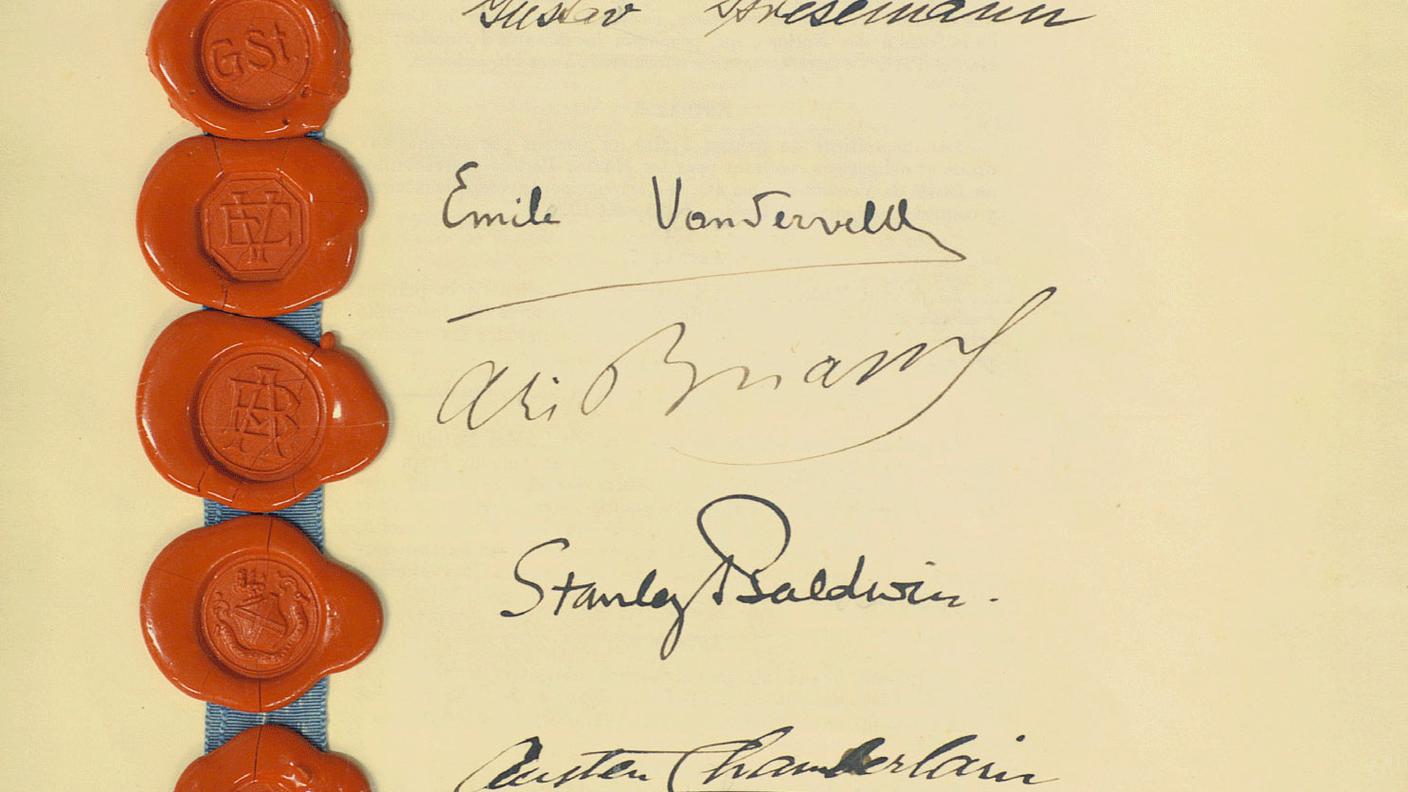 GSt
Gustav Stresemann
Emile Vandervelde
EV
Ari Briand
AB
Stanley Baldwin.
Austen Chamberlain